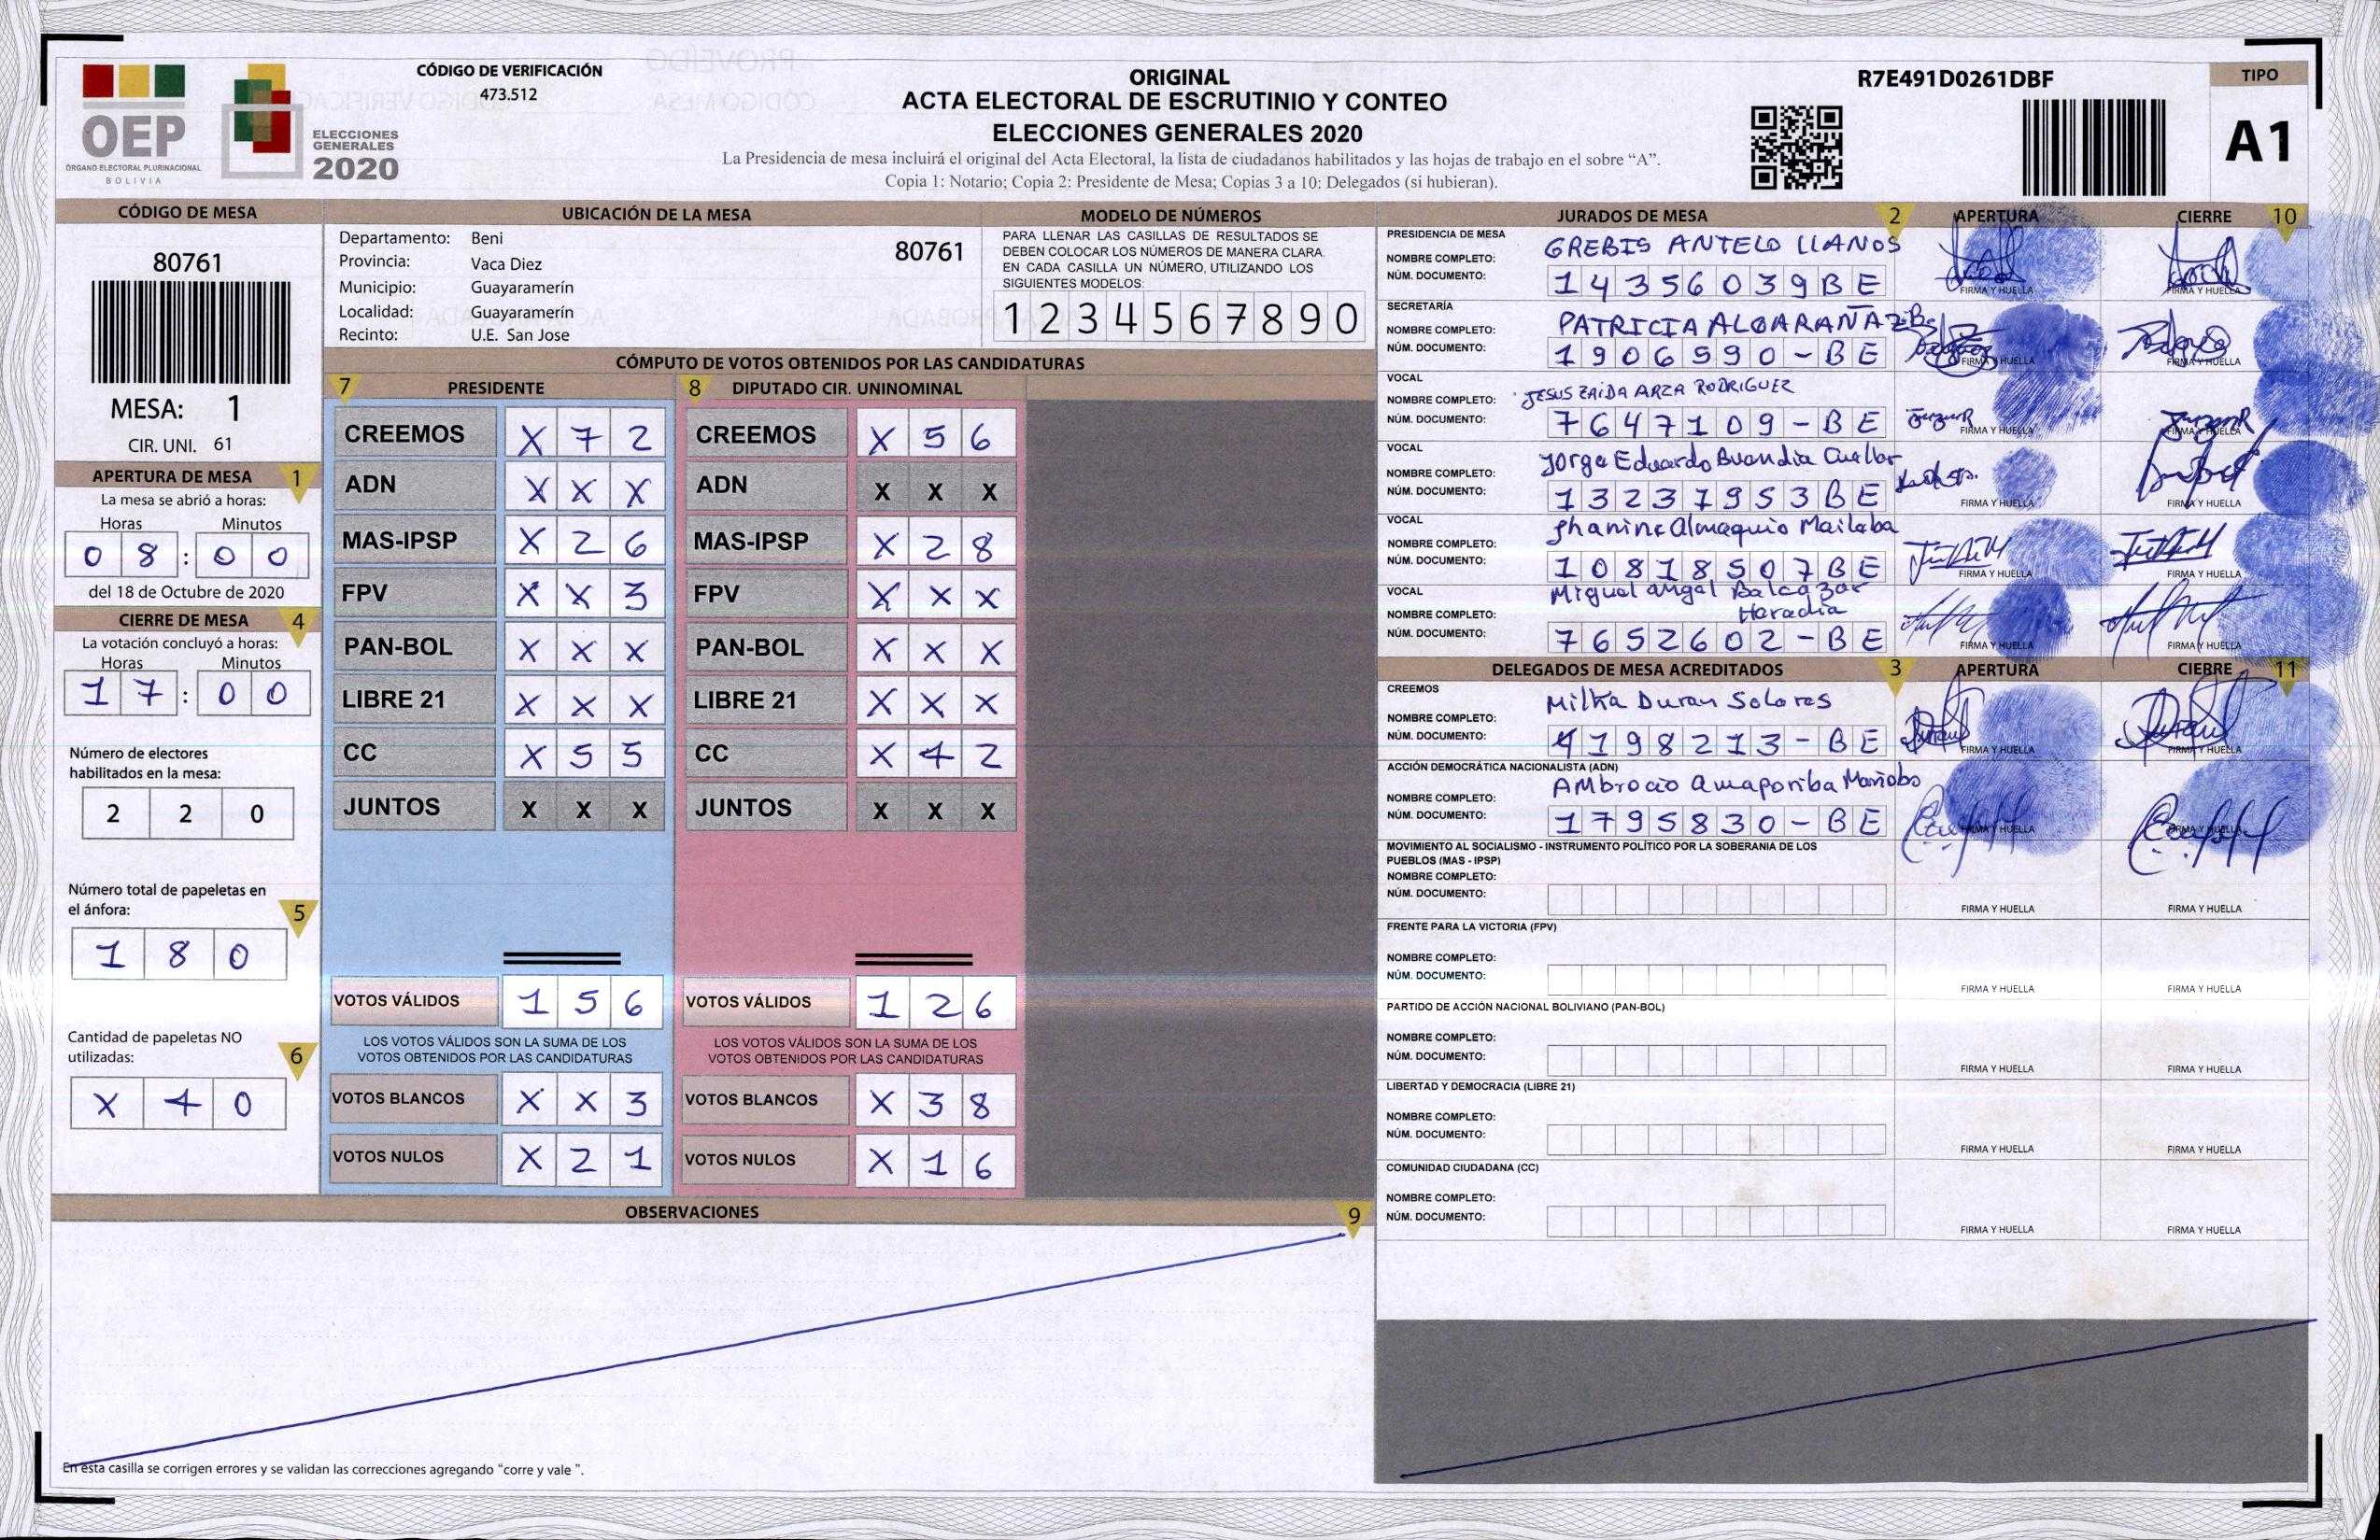 CÓDIGO DE VERIFICACIÓN
473.512
ORIGINAL
ACTA ELECTORAL DE ESCRUTINIO Y CONTEO
ELECCIONES GENERALES 2020
La Presidencia de mesa incluirá el original del Acta Electoral, la lista de ciudadanos habilitados y las hojas de trabajo en el sobre “A”.
Copia 1: Notario; Copia 2: Presidente de Mesa; Copias 3 a 10: Delegados (si hubieran).
R7E491D0261DBF
TIPO
A1
OEP
ÓRGANO ELECTORAL PLURINACIONAL
BOLIVIA
ELECCIONES
GENERALES
2020
CÓDIGO DE MESA
80761
MESA: 1
CIR. UNI. 61
APERTURA DE MESA 1
La mesa se abrió a horas:
Horas Minutos
0 8 : 0 0
del 18 de Octubre de 2020
CIERRE DE MESA 4
La votación concluyó a horas:
Horas Minutos
1 7 : 0 0
Número de electores
habilitados en la mesa:
2 2 0
Número total de papeletas en
el ánfora: 5
1 8 0
Cantidad de papeletas NO
utilizadas: 6
X 4 0
UBICACIÓN DE LA MESA
Departamento: Beni
80761
Provincia: Vaca Diez
Municipio: Guayaramerín
Localidad: Guayaramerín
Recinto: U.E. San Jose
MODELO DE NÚMEROS
PARA LLENAR LAS CASILLAS DE RESULTADOS SE
DEBEN COLOCAR LOS NÚMEROS DE MANERA CLARA.
EN CADA CASILLA UN NÚMERO, UTILIZANDO LOS
SIGUIENTES MODELOS:
1 2 3 4 5 6 7 8 9 0
CÓMPUTO DE VOTOS OBTENIDOS POR LAS CANDIDATURAS
7 PRESIDENTE
CREEMOS X 7 2
ADN X X X
MAS-IPSP X 2 6
FPV X X 3
PAN-BOL X X X
LIBRE 21 X X X
CC X 5 5
JUNTOS X X X
VOTOS VÁLIDOS 1 5 6
LOS VOTOS VÁLIDOS SON LA SUMA DE LOS
VOTOS OBTENIDOS POR LAS CANDIDATURAS
VOTOS BLANCOS X X 3
VOTOS NULOS X 2 1
8 DIPUTADO CIR. UNINOMINAL
CREEMOS X 5 6
ADN X X X
MAS-IPSP X 2 8
FPV X X X
PAN-BOL X X X
LIBRE 21 X X X
CC X 4 2
JUNTOS X X X
VOTOS VÁLIDOS 1 2 6
LOS VOTOS VÁLIDOS SON LA SUMA DE LOS
VOTOS OBTENIDOS POR LAS CANDIDATURAS
VOTOS BLANCOS X 3 8
VOTOS NULOS X 1 6
OBSERVACIONES 9
En esta casilla se corrigen errores y se validan las correcciones agregando “corre y vale ”.
JURADOS DE MESA 2 APERTURA CIERRE 10
PRESIDENCIA DE MESA
NOMBRE COMPLETO: GREBIS ANTELO LLANOS
NÚM. DOCUMENTO: 14356039BE
FIRMA Y HUELLA FIRMA Y HUELLA
SECRETARÍA
NOMBRE COMPLETO: PATRICIA
NÚM. DOCUMENTO: 1906590-BE
FIRMA Y HUELLA FIRMA Y HUELLA
VOCAL
NOMBRE COMPLETO: JESUS ZAIDA ARZA RODRIGUEZ
NÚM. DOCUMENTO: 7647109-BE
FIRMA Y HUELLA FIRMA Y HUELLA
VOCAL
NOMBRE COMPLETO: Jorge Eduardo Buandia Cuellar
NÚM. DOCUMENTO: 13237953BE
FIRMA Y HUELLA FIRMA Y HUELLA
VOCAL
NOMBRE COMPLETO: Jhanine Almaquio Mailaba
NÚM. DOCUMENTO: 10818507BE
FIRMA Y HUELLA FIRMA Y HUELLA
VOCAL
NOMBRE COMPLETO: Miguel angel Balcazar
Heradia
NÚM. DOCUMENTO: 7652602-BE
FIRMA Y HUELLA FIRMA Y HUELLA
DELEGADOS DE MESA ACREDITADOS 3 APERTURA CIERRE 11
CREEMOS
NOMBRE COMPLETO: Milka Duran Solares
NÚM. DOCUMENTO: 4198213-BE
FIRMA Y HUELLA FIRMA Y HUELLA
ACCIÓN DEMOCRÁTICA NACIONALISTA (ADN)
NOMBRE COMPLETO: AMbrocio Amaporiba
NÚM. DOCUMENTO: 1795830-BE
FIRMA Y HUELLA FIRMA Y HUELLA
MOVIMIENTO AL SOCIALISMO - INSTRUMENTO POLÍTICO POR LA SOBERANIA DE LOS
PUEBLOS (MAS - IPSP)
NOMBRE COMPLETO:
NÚM. DOCUMENTO:
FIRMA Y HUELLA FIRMA Y HUELLA
FRENTE PARA LA VICTORIA (FPV)
NOMBRE COMPLETO:
NÚM. DOCUMENTO:
FIRMA Y HUELLA FIRMA Y HUELLA
PARTIDO DE ACCIÓN NACIONAL BOLIVIANO (PAN-BOL)
NOMBRE COMPLETO:
NÚM. DOCUMENTO:
FIRMA Y HUELLA FIRMA Y HUELLA
LIBERTAD Y DEMOCRACIA (LIBRE 21)
NOMBRE COMPLETO:
NÚM. DOCUMENTO:
FIRMA Y HUELLA FIRMA Y HUELLA
COMUNIDAD CIUDADANA (CC)
NOMBRE COMPLETO:
NÚM. DOCUMENTO:
FIRMA Y HUELLA FIRMA Y HUELLA